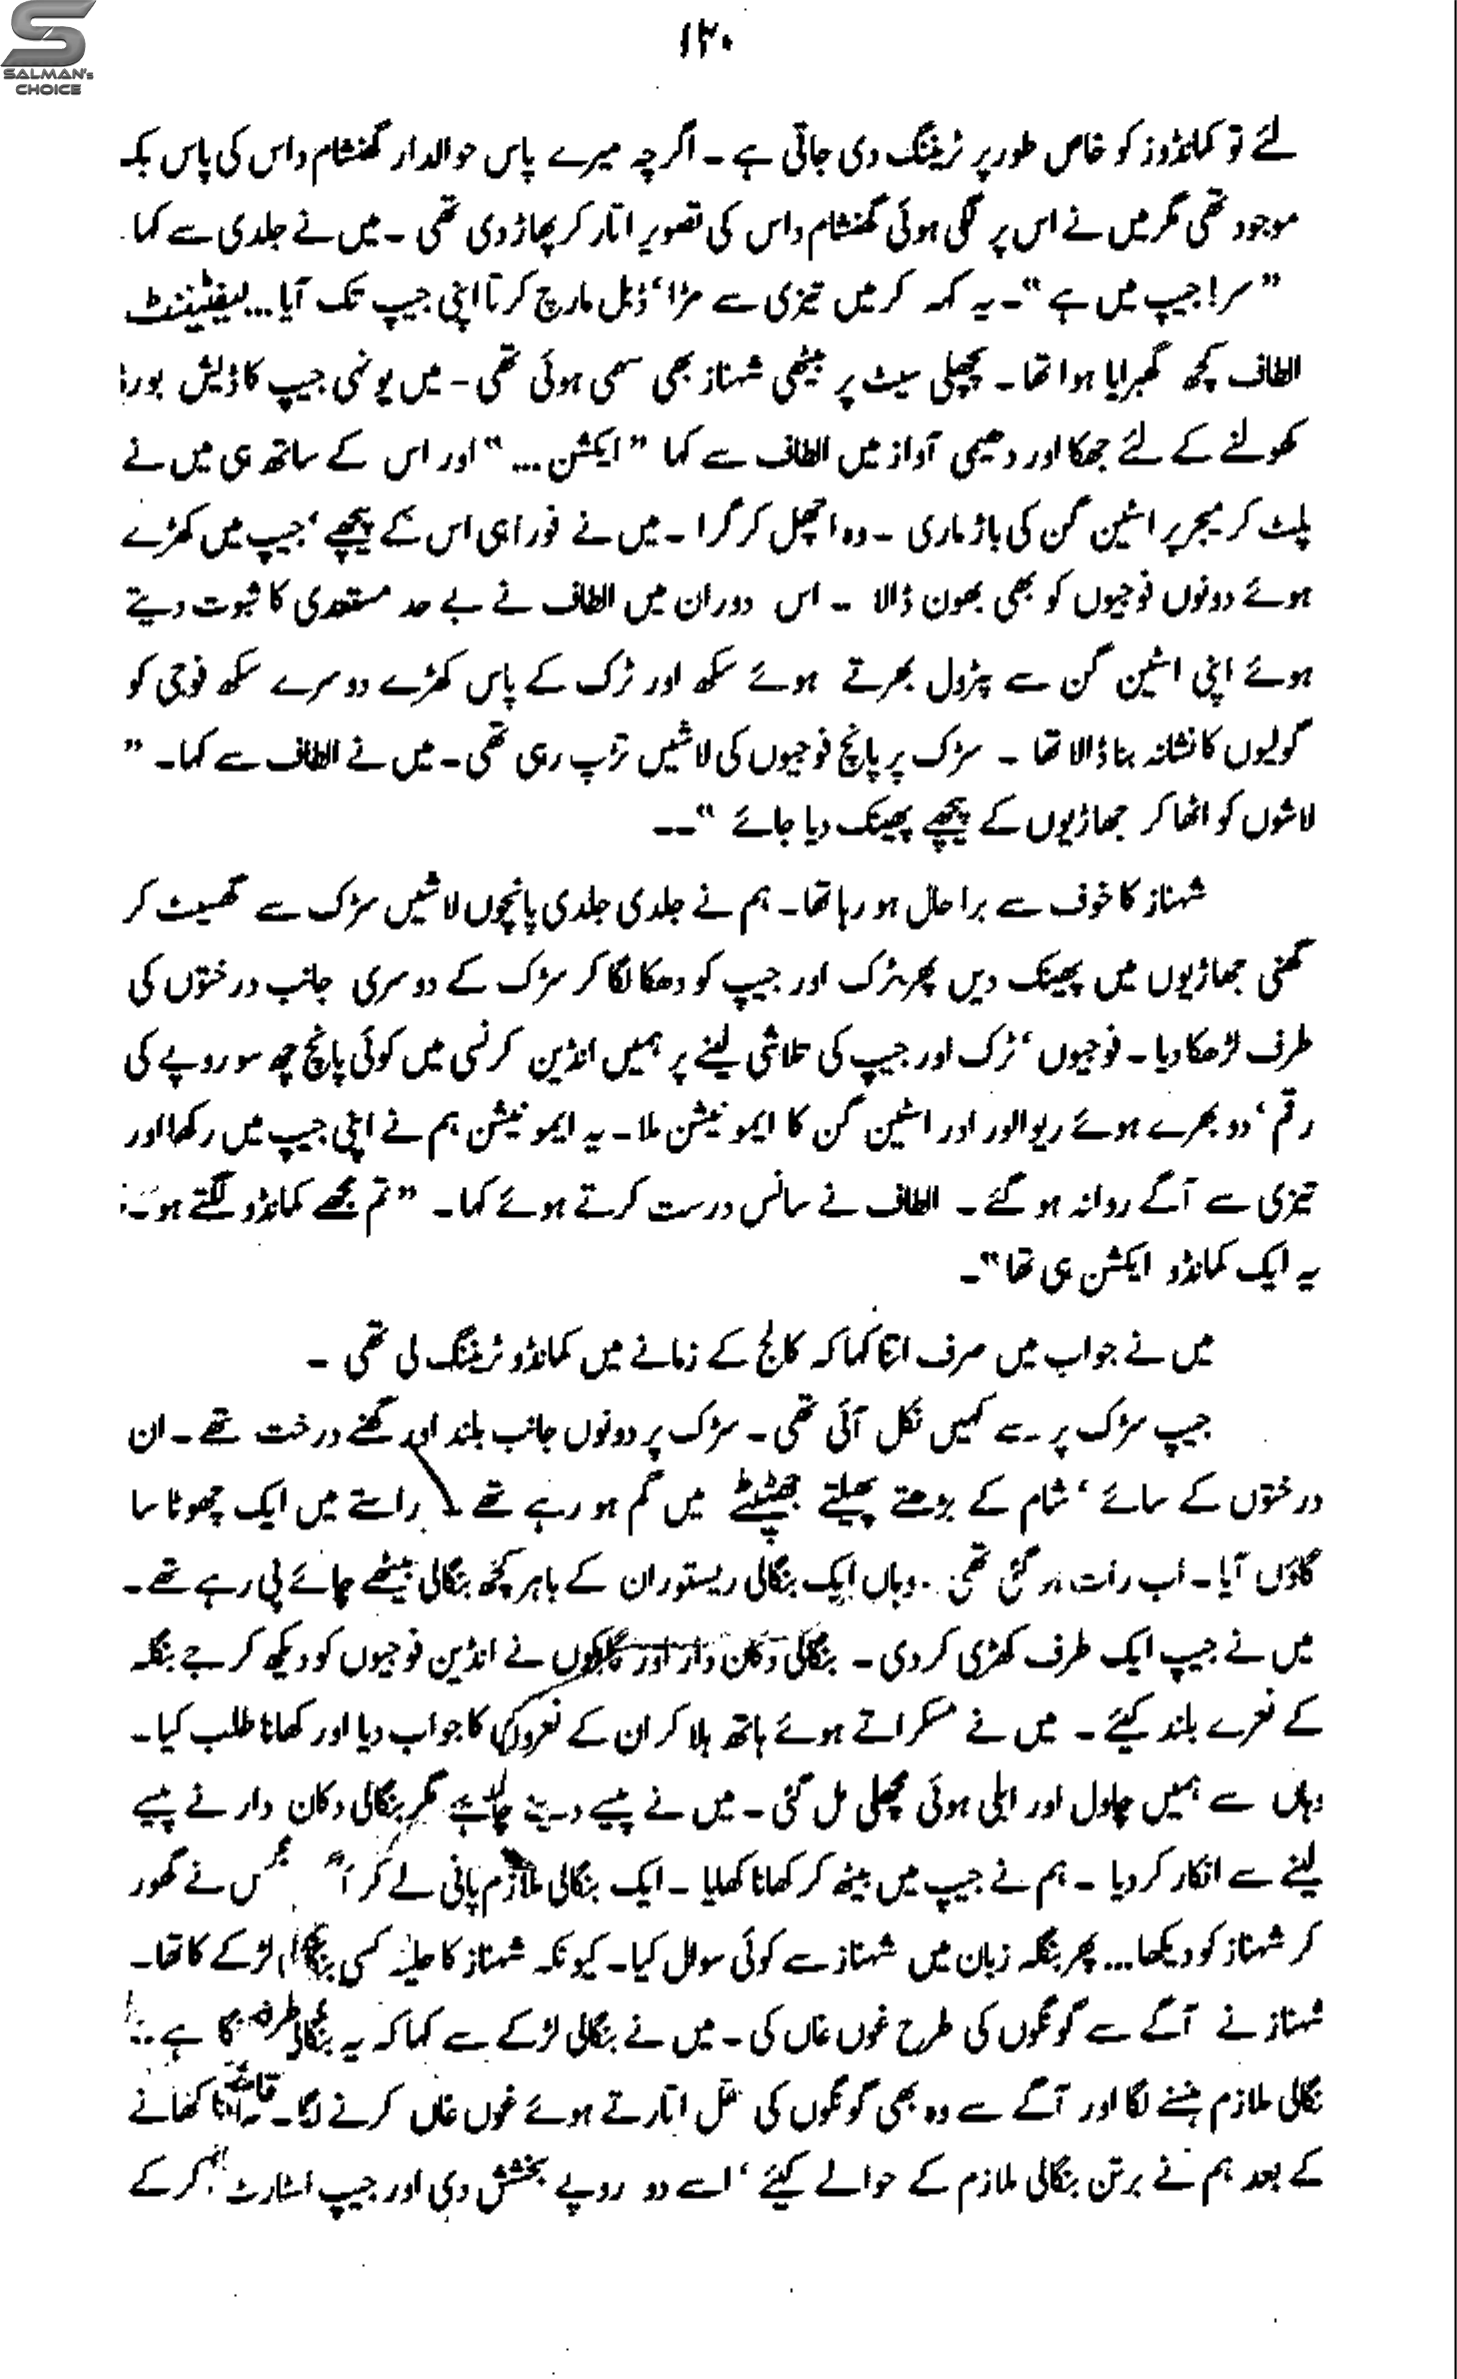 SALMAN's
CHOICE
۱۲۰
لئے تو کمانڈوز کو خاص طور پر ٹریننگ دی جاتی ہے ۔ اگرچہ میرے پاس حوالدار گھنشام داس کی پاس بک
موجود تھی مگر میں نے اس پر لگی ہوئی گھنشام داس کی تصویر اتار کر پھاڑ دی تھی ۔ میں نے جلدی سے کہا
”سر! جیپ میں ہے“۔ یہ کہہ کر میں تیزی سے مڑا‘ ڈبل مارچ کرتا اپنی جیپ تک آیا... لیفٹیننٹ
الطاف کچھ گھبرایا ہوا تھا ۔ پچھلی سیٹ پر بیٹھی شہناز بھی سہمی ہوئی تھی ۔ میں یونہی جیپ کا ڈیش بورڈ
کھولنے کے لئے جھکا اور دھیمی آواز میں الطاف سے کہا ”ایکشن ...“ اور اس کے ساتھ ہی میں نے
پلٹ کر میجر پر اسٹین گن کی باڑ ماری ۔ وہ اچھل کر گرا ۔ میں نے فورا ہی اس کے پیچھے‘ جیپ میں کھڑے
ہوئے دونوں فوجیوں کو بھی بھون ڈالا ۔ اس دوران میں الطاف نے بے حد مستعدی کا ثبوت دیتے
ہوئے اپنی اسٹین گن سے پٹرول بھرتے ہوئے سکھ اور ٹرک کے پاس کھڑے دوسرے سکھ فوجی کو
گولیوں کا نشانہ بنا ڈالا تھا ۔ سڑک پر پانچ فوجیوں کی لاشیں تڑپ رہی تھی ۔ میں نے الطاف سے کہا ۔ ”
لاشوں کو اٹھا کر جھاڑیوں کے پیچھے پھینک دیا جائے“ ۔۔
شہناز کا خوف سے برا حال ہو رہا تھا ۔ ہم نے جلدی جلدی پانچوں لاشیں سڑک سے گھسیٹ کر
گھنی جھاڑیوں میں پھینک دیں پھر ٹرک اور جیپ کو دھکا لگا کر سڑک کے دوسری جانب درختوں کی
طرف لڑھکا دیا ۔ فوجیوں‘ ٹرک اور جیپ کی تلاشی لینے پر ہمیں انڈین کرنسی میں کوئی پانچ چھ سو روپے کی
رقم‘ دو بھرے ہوئے ریوالور اور اسٹین گن کا ایمونیشن ملا ۔ یہ ایمونیشن ہم نے اپنی جیپ میں رکھا اور
تیزی سے آگے روانہ ہو گئے ۔ الطاف نے سانس درست کرتے ہوئے کہا ۔ ”تم مجھے کمانڈو لگتے ہو ۔
یہ ایک کمانڈو ایکشن ہی تھا“ ۔
میں نے جواب میں صرف اتنا کہا کہ کالج کے زمانے میں کمانڈو ٹریننگ لی تھی ۔
جیپ سڑک پر سے کہیں نکل آئی تھی ۔ سڑک پر دونوں جانب بلند اور گھنے درخت تھے ۔ ان
درختوں کے سائے‘ شام کے بڑھتے پھیلتے جھٹپٹے میں گم ہو رہے تھے ۔ راستے میں ایک چھوٹا سا
گاؤں آیا ۔ اب رات ہو گئی تھی ۔ وہاں ایک بنگالی ریستوران کے باہر کچھ بنگالی بیٹھے چائے پی رہے تھے ۔
میں نے جیپ ایک طرف کھڑی کر دی ۔ بنگالی دکان دار اور گاہکوں نے انڈین فوجیوں کو دیکھ کر جے بنگلہ
کے نعرے بلند کیئے ۔ میں نے مسکراتے ہوئے ہاتھ ہلا کر ان کے نعروں کا جواب دیا اور کھانا طلب کیا ۔
وہاں سے ہمیں چاول اور ابلی ہوئی مچھلی مل گئی ۔ میں نے پیسے دینے چاہے مگر بنگالی دکان دار نے پیسے
لینے سے انکار کر دیا ۔ ہم نے جیپ میں بیٹھ کر کھانا کھایا ۔ ایک بنگالی ملازم پانی لے کر نے گھور
کر شہناز کو دیکھا ... پھر بنگلہ زبان میں شہناز سے کوئی سوال کیا ۔ کیونکہ شہناز کا حلیہ کسی بنگالی لڑکے کا تھا ۔
شہناز نے آگے سے گونگوں کی طرح غوں غاں کی ۔ میں نے بنگالی لڑکے سے کہا کہ یہ ہے ۔
بنگالی ملازم ہنسنے لگا اور آگے سے وہ بھی گونگوں کی نقل اتارتے ہوئے غوں غاں کرنے لگا ۔ کھانے
کے بعد ہم نے برتن بنگالی ملازم کے حوالے کیئے‘ اسے دو روپے بخشش دی اور جیپ اسٹارٹ کر کے